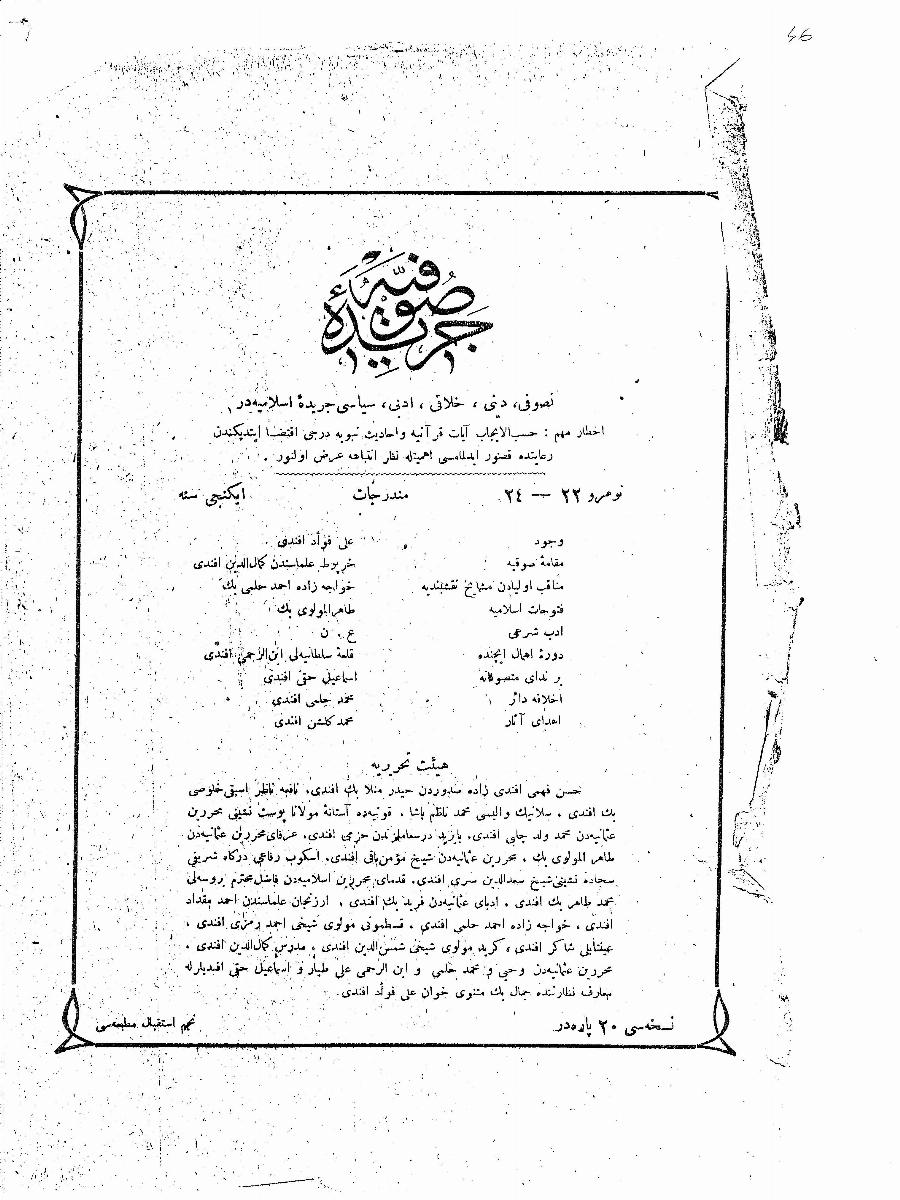 46
جريدۀ صوفيه
تصوفى، دينى ، خلاقى ، ادبى، سياسى جريدۀ اسلاميه‌در
اخطار مهم : حسب‌الايجاب آيات قرآنيه واحاديث نبويه درجى اقتضا ايتديكندن
رعايتده قصور ايدلمامسى اهميتله نظر انتباهه عرض اولنور .
نومرو ٢٢ — ٢٤ مندرجات ايكنجى سنه
وجود على فؤاد افندى
مقامۀ صوفيه خرپوط علماسندن كمال‌الدين افندى
مناقب اوليادن مشايخ نقشبنديه خواجه زاده احمد حلمى بك
فتوحات اسلاميه طاهرالمولوى بك
ادب شرعى ع . ن
دورۀ اهمال ايچنده قلعۀ سلطانيه‌لى ابن‌الرحمى افندى
بر نداى متصوفانه اسماعيل حقى افندى
اخلاقه دائر محمد حلمى افندى
اهداى آثار محمد كلشن افندى
هيئت تحريريه
حسن فهمى افندى زاده صدوردن حيدر منلا بك افندى، نافعه ناظر اسبقى خلوصى
بك افندى ، سلانيك واليسى محمد ناظم پاشا ، قونيه‌ده آستانۀ مولانا پوست نشينى محررين
عثمانيه‌دن محمد ولد چلبى افندى، بايزيد درسعاملرندن حزمى افندى، عرفاى محررين عثمانيه‌دن
طاهر المولوى بك ، محررين عثمانيه‌دن شيخ مؤمن باقى افندى، اسكوب رفاعى درگاه شريفى
سجاده نشينى شيخ سعدالدين سرى افندى، قدماى محررين اسلاميه‌دن فاضل محترم بروسه‌لى
محمد طاهر بك افندى ، ادباى عثمانيه‌دن فريد بك افندى ، ارزنجان علماسندن احمد مقداد
افندى ، خواجه زاده احمد حلمى افندى ، قسطمونى مولوى شيخى احمد رمزى افندى ،
عينتابلى شاكر افندى ، كريد مولوى شيخى شمس‌الدين افندى ، مدرس كمال‌الدين افندى ،
محررين عثمانيه‌دن وحيى و محمد حلمى و ابن الرحمى على طيار و اسماعيل حقى افنديلرله
معارف نظارتنده جمال بك مثنوى خوان على فؤاد افندى
نسخه‌سى ٢٠ پاره‌در نجم استقبال مطبعه‌سى